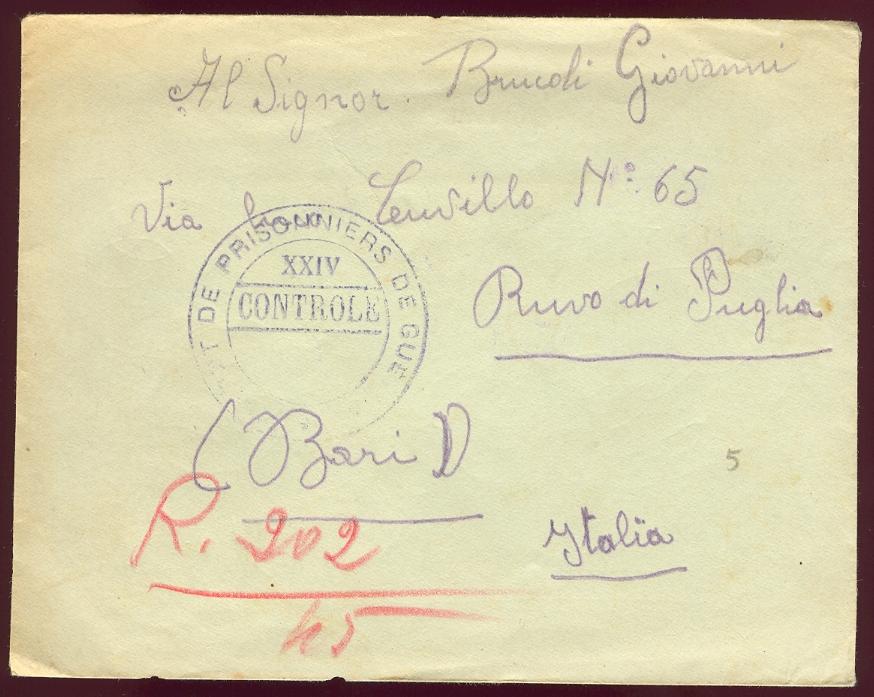 Al Signor. Brucoli Giovanni
Via Cervillo N° 65
DE PRISONNIERS DE GUE
XXIV
CONTROLE
Ruvo di Puglia
(Bari)
5
R. 202
45
Italia